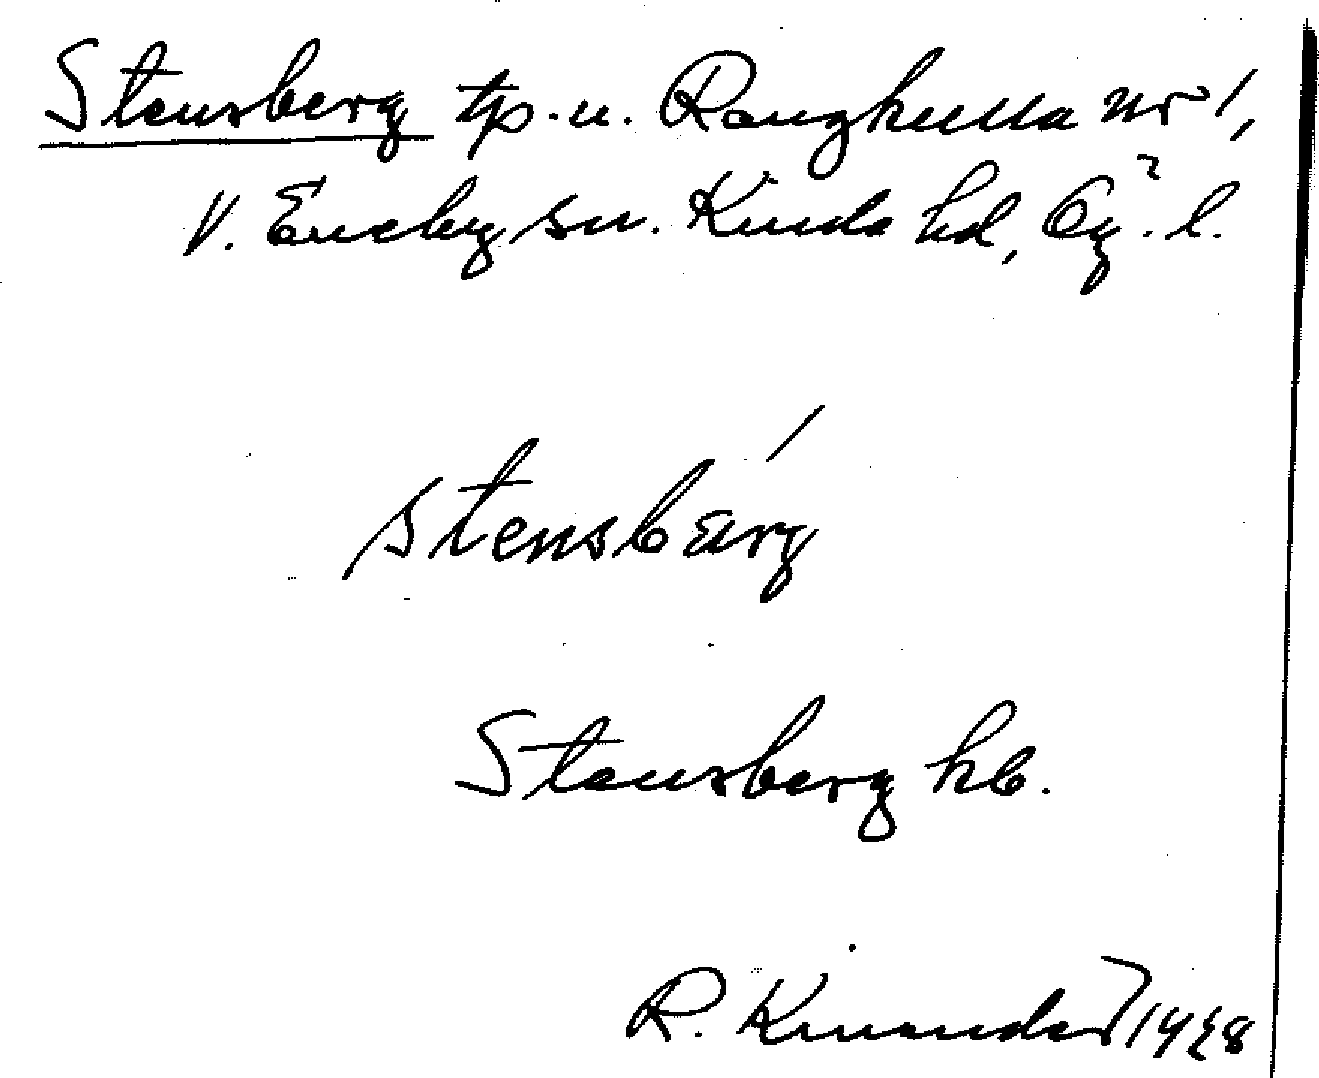 Stensberg tp. u. Rangkulla nr 1,
V. Eneby sn. Kinda hd, Ög. l.
stensbärg
Stensberg hb.
R. Kinander 1928